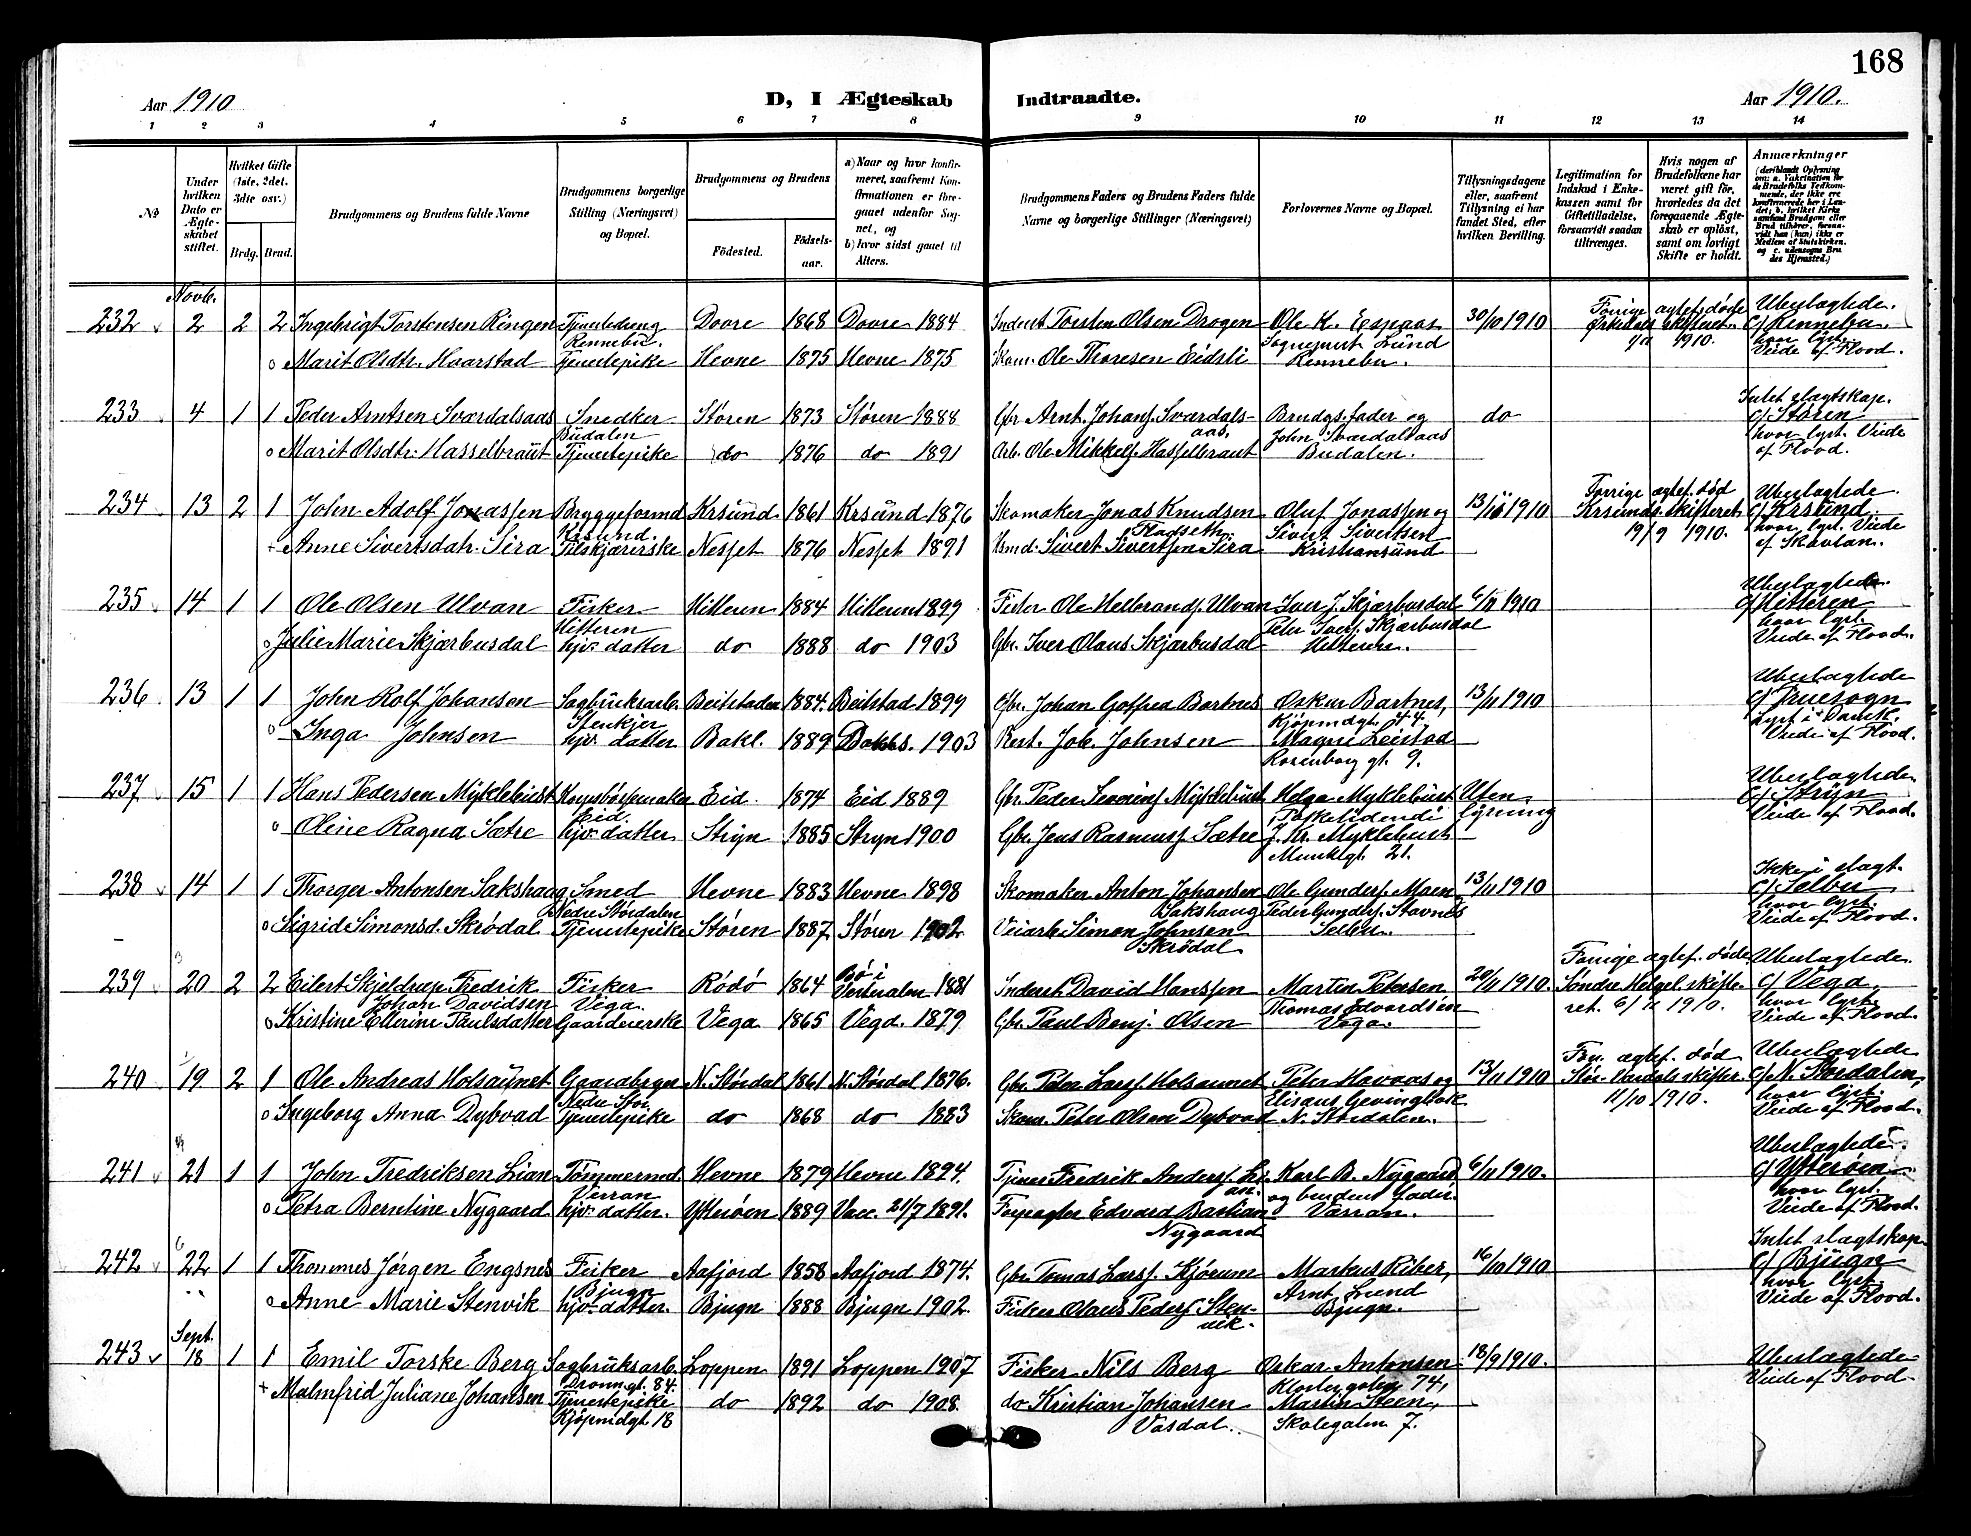 168
Aar 1910
D, I Ægteskab Indtraadte.
Aar 1910.
1 2 3 4 5 6 7 8 9 10 11 12 13 14
No
Under hvilken Dato er Ægteskabet stiftet.
Hvilket Gifte (1ste, 2det, 3die osv.)
Brdg. Brud.
Brudgommens og Brudens fulde Navne
Brudgommens borgerlige Stilling (Næringsvei) og Bopæl.
Brudgommens og Brudens
Fødested.
Fødselsaar.
a) Naar og hvor konfirmeret, saafremt Konfirmationen er foregaaet udenfor Sognet, og
b) hvor sidst gaaet til Alters.
Brudgommens Faders og Brudens Faders fulde Navne og borgerlige Stillinger (Næringsvei)
Forlovernes Navne og Bopæl.
Tillysningsdagene eller, saafremt Tillysning ei har fundet Sted, efter hvilken Bevilling.
Legitimation for Indskud i Enkekassen samt for Giftetilladelse, forsaavidt saadan tiltrænges.
Hvis nogen af Brudefolkene har været gift før, hvorledes da det foregaaende Ægteskab er opløst, samt om lovligt Skifte er holdt.
Anmærkninger
Novb.
232 2 2 2 Ingebrigt Torstensen Ringen Tjenestedreng Dovre 1868 Dovre 1884 Inderst Torsten Olsen Drogen Ole K. Espaas 30/10 1910 Forrige ægtef. døde Ubeslægtede.
Rennebu. Sognepræst Lund Orkedals skifteret. Cf Rennebu.
Marit Olsdtr. Haarstad Tjenestepike Hevne 1875 Hevne 1875 Skom. Ole Thoresen Eidsli Rennebu. 1910. hvor lyst. Viede af Flood.
233 4 1 1 Peder Arntsen Sværdalsaas Snedker Støren 1873 Støren 1888 Gbr Arnt. Johans. Sværdalsaas. Brudgs. fader og do Intet slægtskap.
Budalen John Sværdalsaas Cf Støren
Marit Olsdtr. Hasselbraut Tjenestepike do 1876 do 1891 Arb. Ole Mikkels. Hasselbraut Budalen. hvor lyst. Viede af Flood.
234 13 2 1 John Adolf Jonassen Bryggeformd Krsund 1861 Krsund 1876 Skomaker Jonas Knudsen Oluf Jonassen og 13/11 1910 Forrige ægtef. død Ubeslægtede.
Krsund. Fladseth. Sivert Sivertsen Krsunds skifteret Cf Krsund.
Anne Sivertsdatr. Sira Tilskjærerske Nesset 1876 Nesset 1891 Hsmd. Sivert Sivertsen Sira Kristiansund 19/9 1910. hvor lyst. Viede af Skavlan.
235 14 1 1 Ole Olsen Ulvan Fisker Hitteren 1884 Hitteren 1899 Fisker Ole Helbrands. Ulvan Iver J. Skjærbusdal 6/11 1910 Ubeslægtede.
Hitteren Peter Ivers. Skjærbusdal Cf Hitteren
Julie Marie Skjærbusdal hjv. datter do 1888 do 1903 Gbr. Iver Olaus Skjærbusdal Hitteren. hvor lyst. Viede af Flood.
236 13 1 1 John Rolf Johansen Sagbruksarb. Beitstaden 1884. Beitstad 1899 Gbr. Johan Gotfred Bartnes Oskar Bartnes, 13/11 1910 Ubeslægtede
Stenkjer Kjøpmdgt. 44. Cf Fruesogn
Inga Johnsen hjv. datter Bakl. 1889 Bakl. 1903 Rent. Joh. Johnsen Magne Leistad lyst i Domk.
Rosenborg gt. 9. Viede af Flood.
237 15 1 1 Hans Pedersen Myklebust Eid. 1874 Eid 1889 Gbr. Peder Myklebust Helga Myklebust Uten lysning Ubeslægtede.
Eid. Cf Stryn
Oline Ragna Sætre hjv. datter Stryn 1885 Stryn 1900 Gbr. Jens Rasmuss. Sætre Myklebust Viede af Flood.
Munkgt. 21.
238 14 1 1 Thorger Antonsen Sakshaug Smed Hevne 1883 Hevne 1898 Skomaker Anton Johansen Ole Gunders. Moen 13/11 1910 Ikke i slagt.
Nedre Stördalen Sakshaug Peder Gunders. Stavnes Cf Selbu
Sigrid Simonsd. Skrødal Tjenestepike Støren 1887 Støren 1902 Veiarb. Simon Johnsen Skrødal Selbu. hvor lyst. Viede af Flood.
239 20 2 2 Eilert Skjeldrup Fredrik Johan Davidsen Fisker Rödö 1864 Bø i Vesteraalen 1881 Inderst David Hanssen Martin Petersen 20/11 1910. Forrige ægtef. døde Ubeslægtede.
Vega. Thomas Edvardsen Söndre Helgel. skifteret. Cf Vega
Kristine Ellerine Paulsdatter Gaardeierske Vega 1865 Vega. 1879 Gbr. Paul Benj. Olsen Vega. 1910. hvor lyst. Viede af Flood.
240 19 2 1 Ole Andreas Holsaunet N. Stördal 1861 N. Stördal 1876. Gbr. Peter Larss. Holsaunet Peter Havaas og 13/11 1910 For. ægtef. død Ubeslægtede
Nedre Stör. Elisæus Gevingbak Stör- Værdals skifter. Cf N. Stördalen,
Ingeborg Anna Dybvad Tjenestepike do 1868 do 1883 Skom. Peter Olsen Dybvad N. Stördalen. 11/10 1910. hvor lyst. Viede af Flood.
241 21 1 1 John Fredriksen Lian Tömmermd. Hevne 1879 Hevne 1894. Fredrik Anders. Lian. Karl B. Nygaard 6/11 1910. Ubeslægtede.
Verran og brudens fader. Cf Ytterøen
Petra Berntine Nygaard hjv. datter. Ytterøen 1889 Vacc. 21/7 1891. Forpagter Edvard Bastian Nygaard Værran. hvor lyst. Viede af Flood.
242 22 1 1 Thommes Jørgen Engsnes Fisker Aafjord 1858 Aafjord 1874. Gbr. Tomas Larss. Kjørum Markus Riber, 16/10 1910 Intet slagtskap
Bjugn Arnt Lund Cf Bjugn
Anne Marie Stenvik hjv. datter. Bjugn 1888 Bjugn 1902. Fisker Olaus Peders. Stenvik. Bjugn. hvor lyst. Viede af Flood.
Sept.
243 18 1 1 Emil Torske Berg Sagbruksarb. Loppen 1891 Loppen 1907 Fisker Nils Berg Oskar Antonsen 18/9 1910. Ubeslægtede
Dronn.gt. 84. Klostergaten 74, Viede af Flood.
Malmfrid Juliane Johansen Tjenestepike do 1892 do 1908 do Kristian Johansen Martin Steen,
Kjøpmdgt. 18 Vasdal. Skolegaten 7.